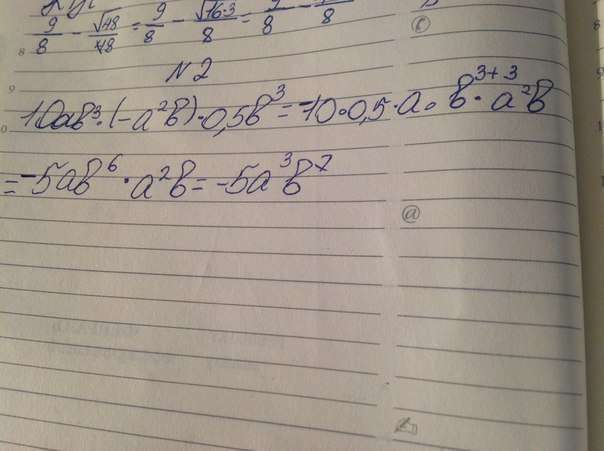 9/8 - √48/48 = 9/8 - √16·3/8 = 9/8 - /8
N 2
10ab³·(-a²b)·0,5b³ = -10·0,5·a·b³⁺³·a²b
= -5ab⁶·a²b = -5a³b⁷